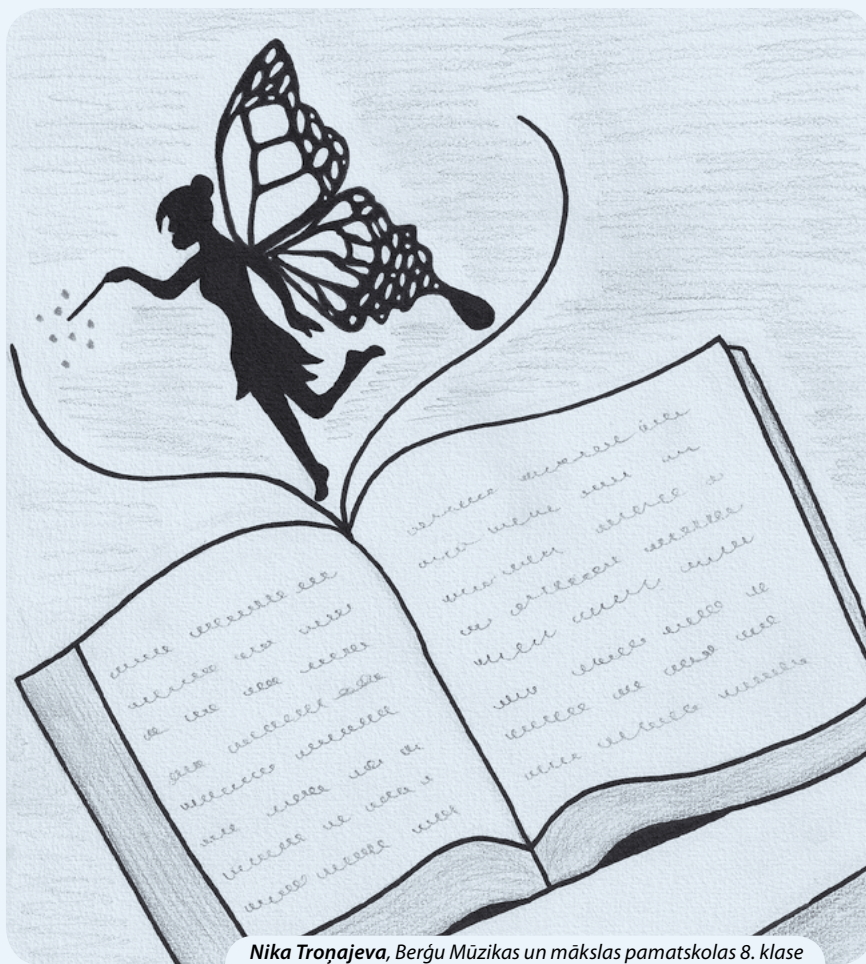 Nika Troņajeva, Berģu Mūzikas un mākslas pamatskolas 8. klase